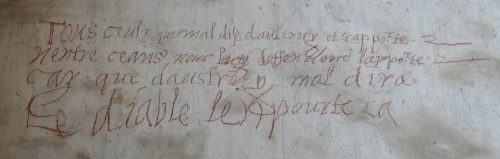 Tous ceulx qui mal dise daultruy et rapporte
Nentre ceans nous luy deffendons la porte
Car que daultruy mal dira
Le diable lepourtera